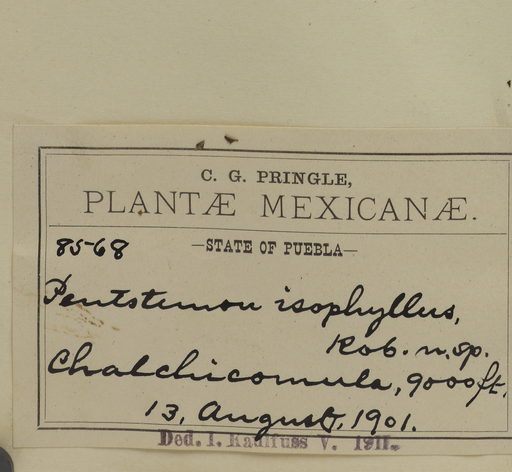 C. G. PRINGLE,
PLANTÆ MEXICANÆ.
8568
—STATE OF PUEBLA—
Pentstemon isophyllus,
Rob. n. sp.
Chalchicomula, 9000 ft.
13, August, 1901.
Ded. I. V. 1911.